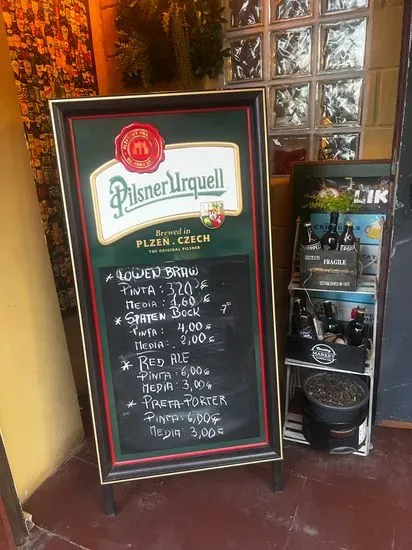 Pilsner Urquell
Brewed in
PLZEŇ . CZECH
THE ORIGINAL PILSNER
* LOWEN BRAW
PINTA : 3,20 €
MEDIA : 1,60 €
* SPATEN BOCK 7°
PINTA : 4,00 €
MEDIA : 2,00 €
* RED ALE
PINTA : 6,00 €
MEDIA : 3,00 €
* PRETA-PORTER
PINTA : 6,00 €
MEDIA : 3,00 €
LIK
FRAGILE
MARKET